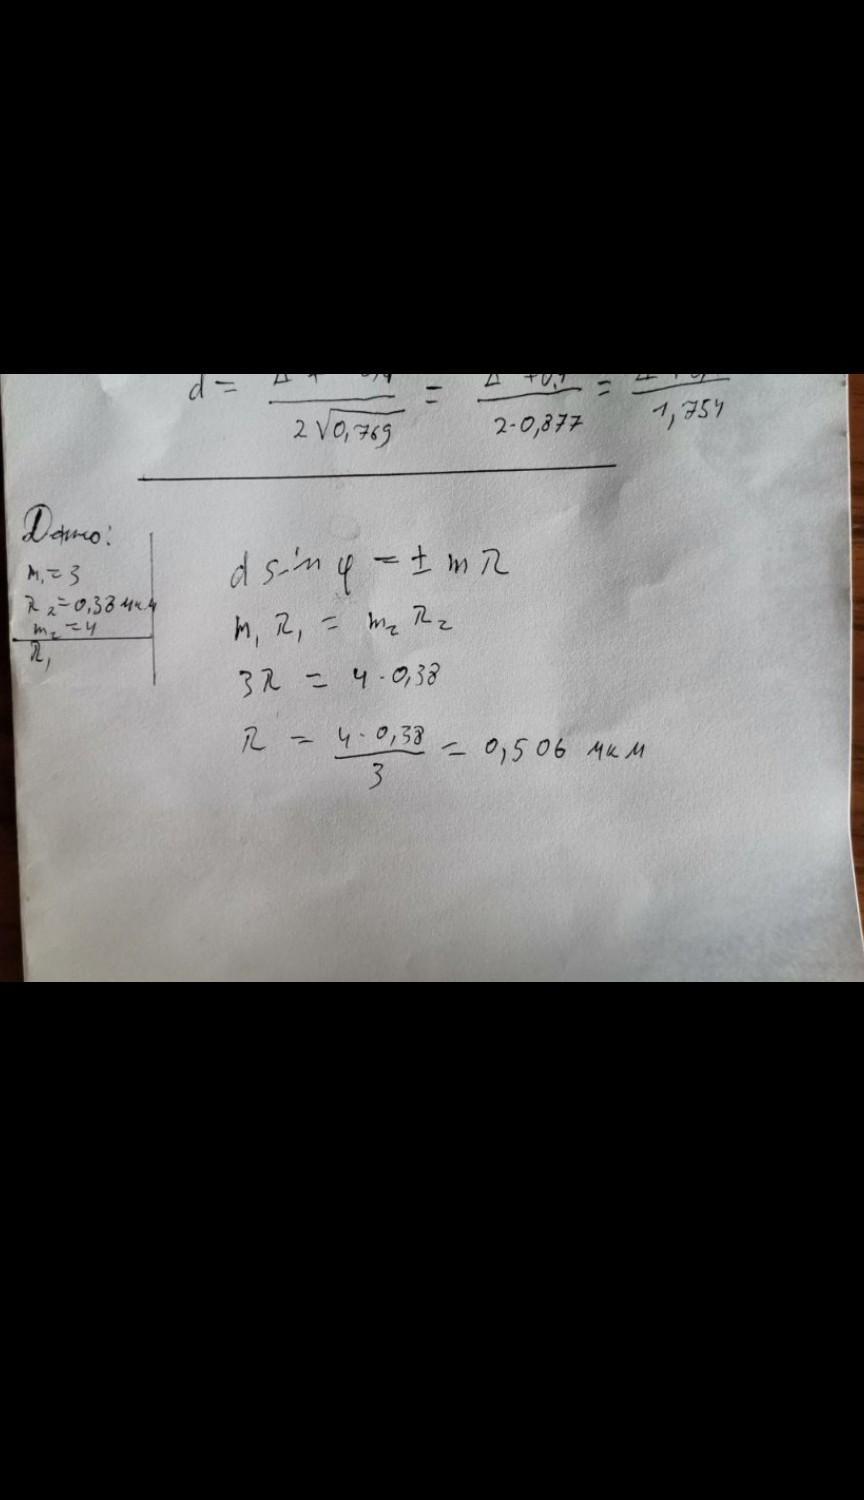 d = 2√0,769 = 2·0,877 = 1,754
Дано:
m₁ = 3
λ₂ = 0,38 мкм
m₂ = 4
λ₁
d sin φ = ± m λ
m₁ λ₁ = m₂ λ₂
3λ = 4 · 0,38
λ = 4 · 0,38 / 3 = 0,506 мкм